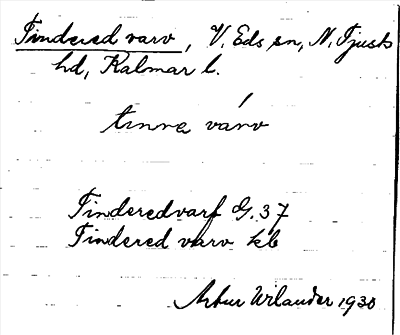 Tindered varv, V. Eds sn, N. Tjusts
hd, Kalmar l.
tınrə va̍rv
Tinderedvarf G. 37
Tindered varv kb
Artur Wilander 1930